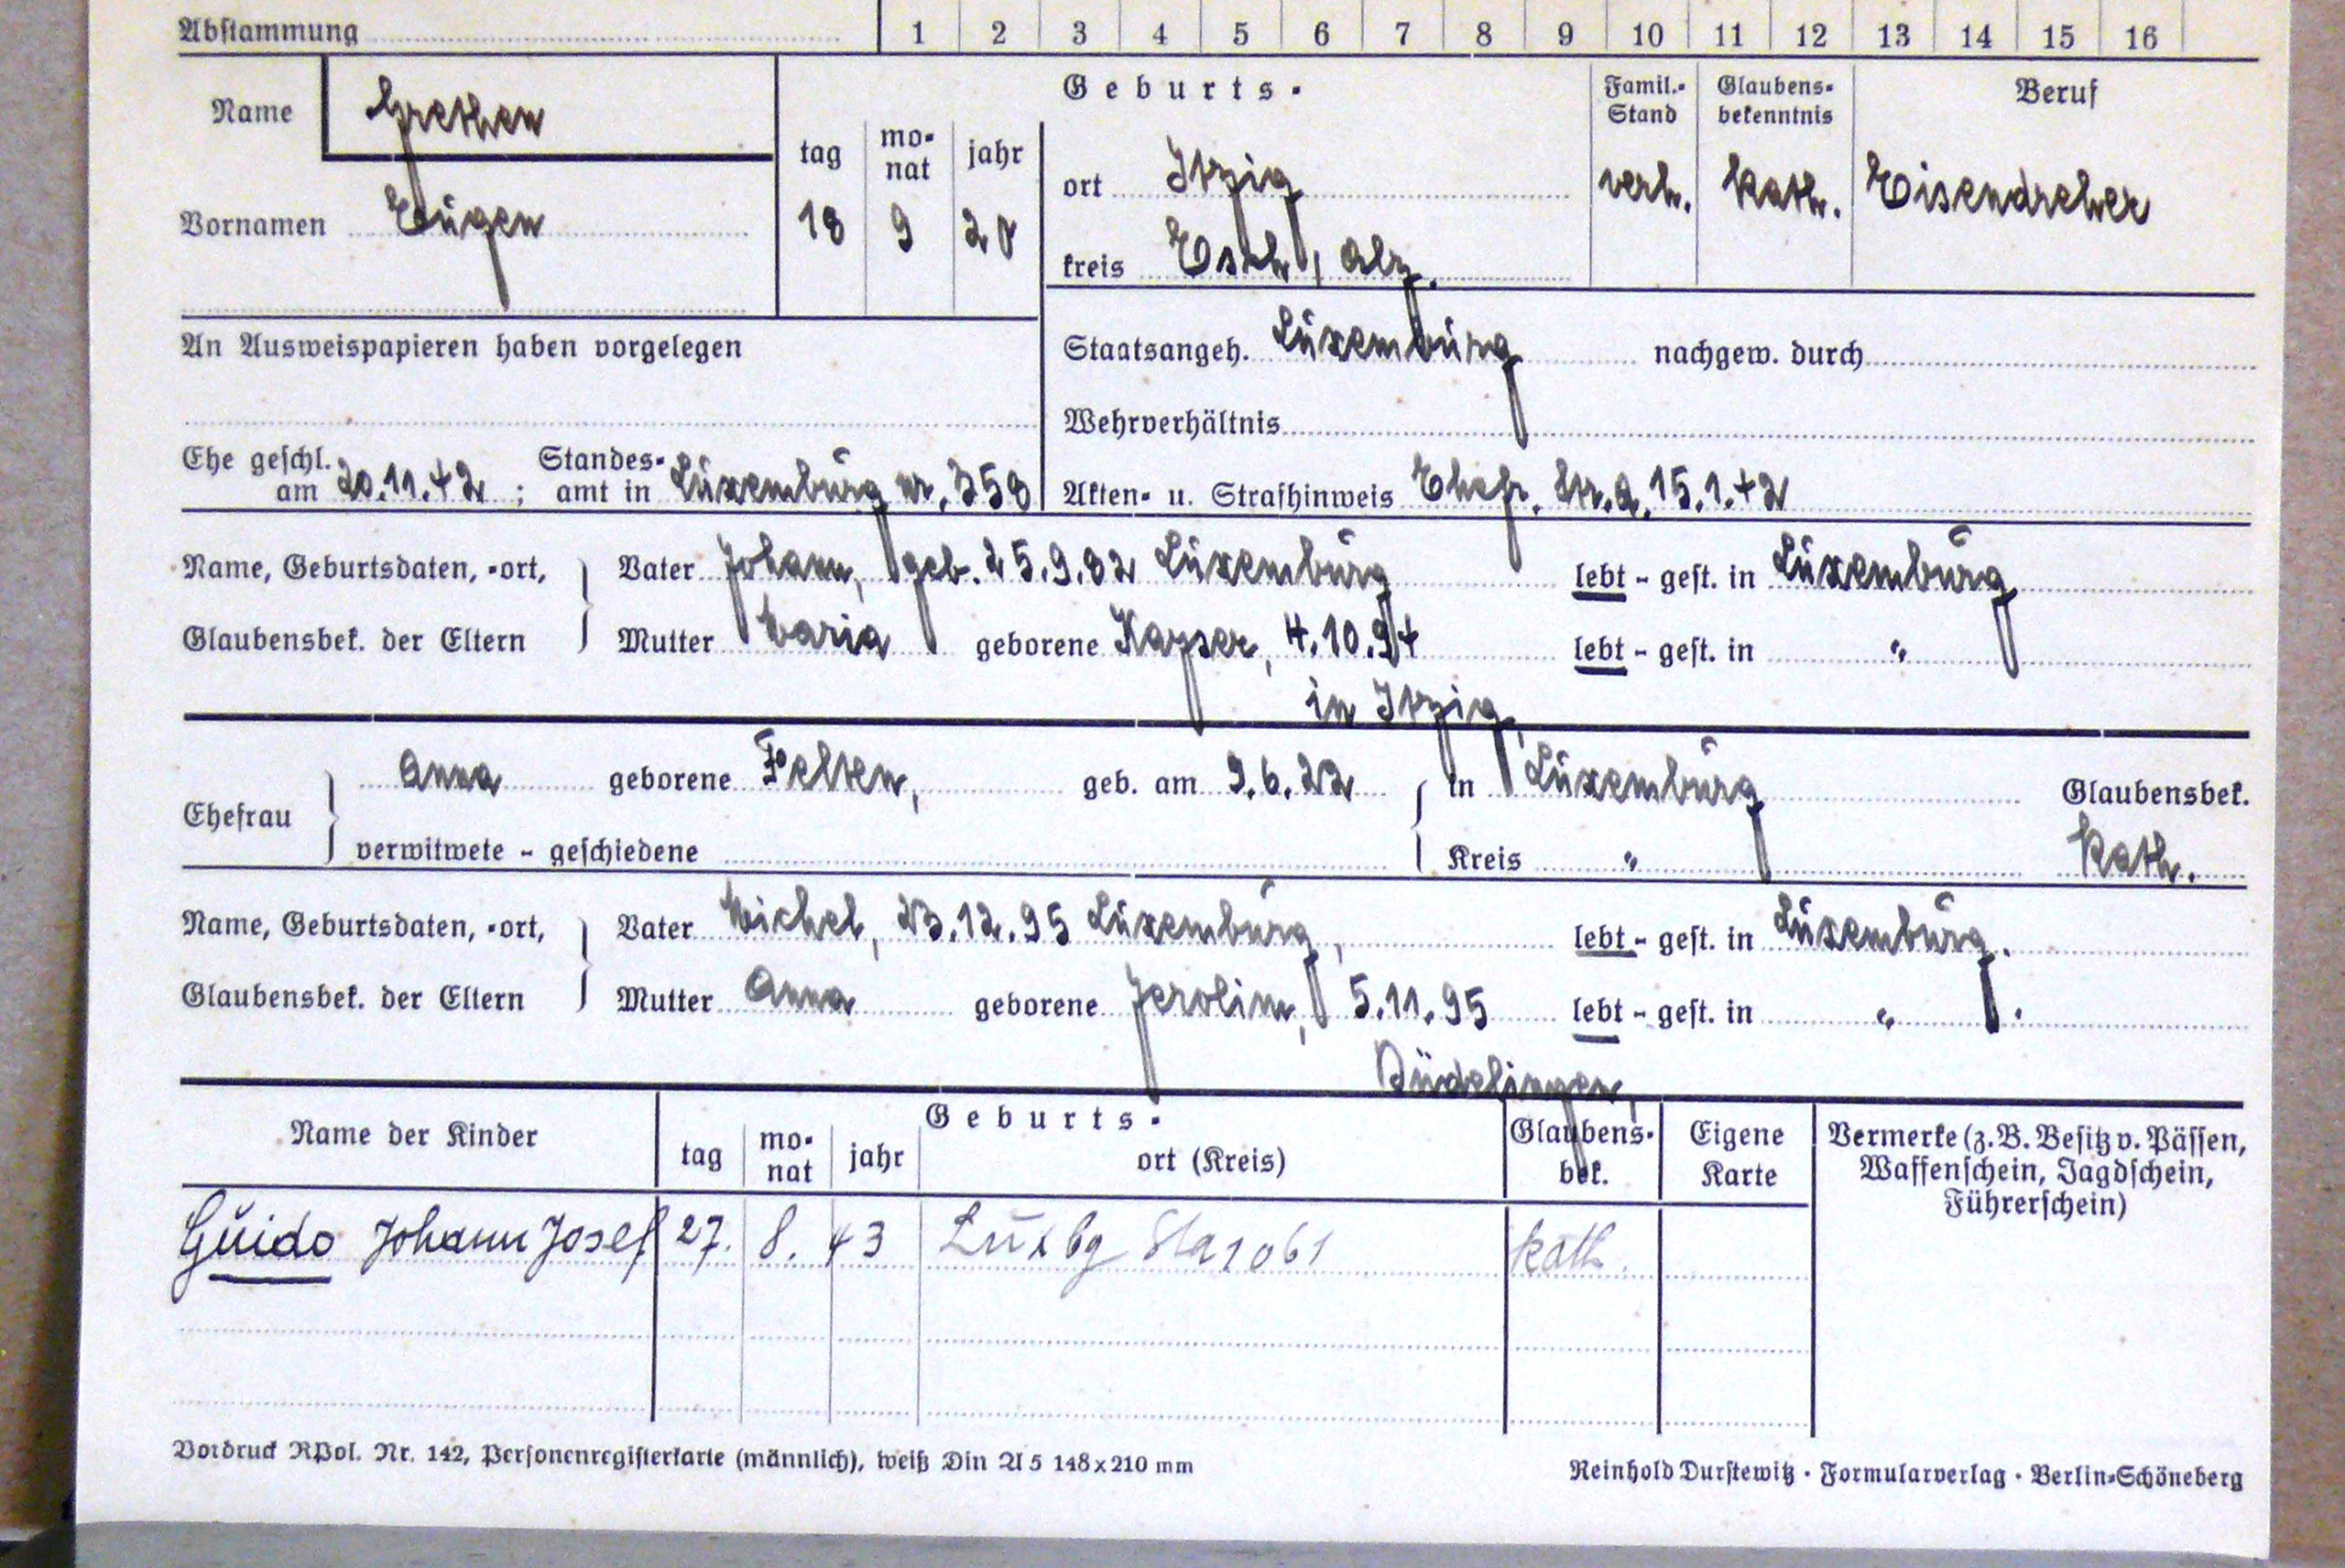 Abstammung 1 2 3 4 5 6 7 8 9 10 11 12 13 14 15 16
Name Grethen
Vornamen Eugen
Geburts-
tag monat jahr
18 9 20
ort Itzig
kreis Esch, Alz.
Famil.-Stand
verh.
Glaubensbekenntnis
kath.
Beruf
Eisendreher
An Ausweispapieren haben vorgelegen
Staatsangeh. Luxemburg nachgew. durch
Wehrverhältnis
Ehe geschl. am 20.11.42 ; Standesamt in Luxemburg nr. 358
Akten- u. Strafhinweis Ehefr. 15.1.42
Name, Geburtsdaten, -ort,
Glaubensbek. der Eltern
Vater Johann, geb. 25.9.82 Luxemburg lebt - gest. in Luxemburg
Mutter Maria geborene Kayser, 4.10.94 lebt - gest. in "
in Itzig
Ehefrau Anna geborene Felten, geb. am 9.6.22 in Luxemburg Glaubensbek.
verwitwete - geschiedene Kreis " kath.
Name, Geburtsdaten, -ort,
Glaubensbek. der Eltern
Vater Michel, 23.12.95 Luxemburg, lebt - gest. in Luxemburg.
Mutter Anna geborene Jerolim, 5.11.95 lebt - gest. in " .
Düdelingen,
Name der Kinder
Geburts-
tag monat jahr ort (Kreis)
Glaubensbek.
Eigene Karte
Vermerke (z. B. Besitz v. Pässen,
Waffenschein, Jagdschein,
Führerschein)
Guido Johann Josef 27. 8. 43 Luxbg Sta 1061 kath.
Vordruck RPol. Nr. 142, Personenregisterkarte (männlich), weiß Din A 5 148x210 mm
Reinhold Durstewitz · Formularverlag · Berlin-Schöneberg